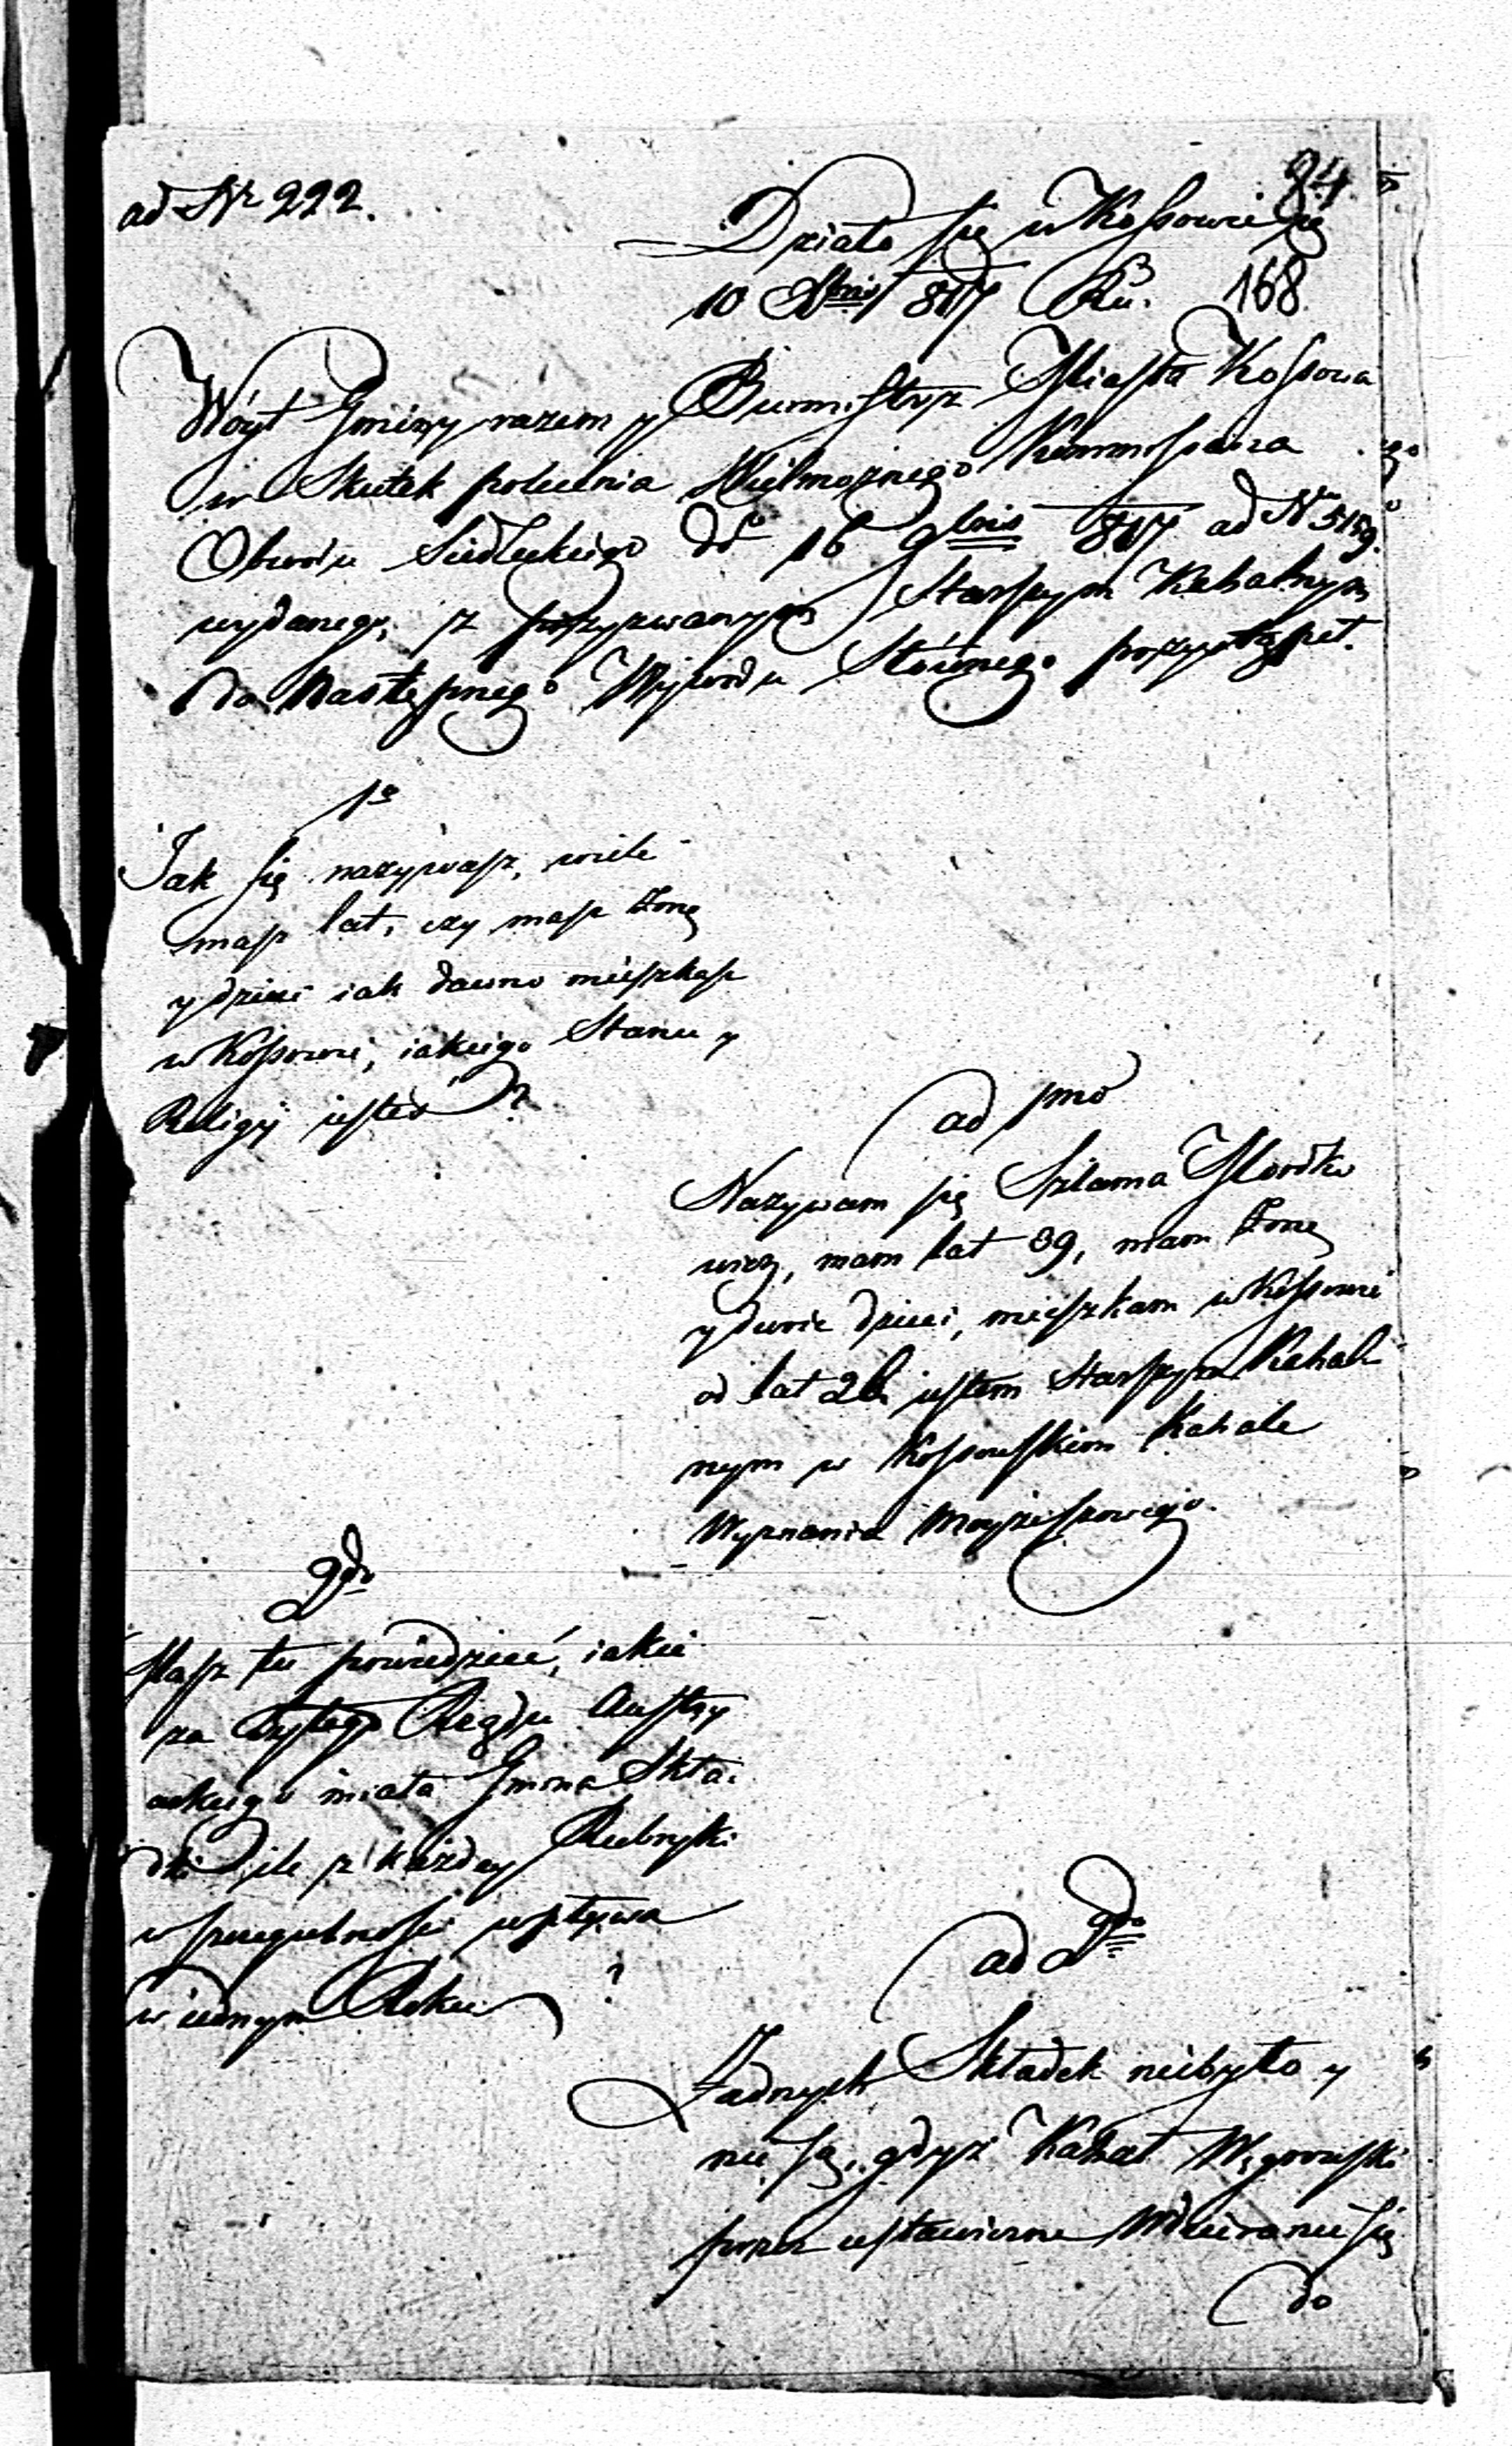 ad Nr 222.
84.
Działo się w Kossowie
10 Xbris 817 Ru. 168.
Wóyt Gminy razem z Burmistrz Miasta Kossowa
w Skutek polecenia Wielmożnego Kommissarza
Obwodu Siedleckiego dd 16 9bris 817 ad Nr 5159.
wydanego, z przyzwanym Starszym Kahalnym
do Następnego Wywodu Słównego przystąpił.
1o
Jak się nazywasz, wiele
masz lat, czy masz żonę
y dzieci iak dawno mieszkasz
w Kossowie, iakiego Stanu y
Religij iesteś?
ad 1mo
Nazywam się Szlama Mordko
wicz, mam lat 39, mam żonę
y dwie dzieci, mieszkam w Kossowie
od lat iestem Starszym Kahal
nym w Kossowskiem Kahale
Wyznania Moyżeszowego.
2do
Masz tu powiedzieć, iakie
za Rządu Austry
ackiego miała Gmina Skła.
dki ile z każdey Rubryki
w szczegulności wpływa
w iednym Roku ?
ad 2do
Żadnych Składek niebyło y
nie są, gdyż Kahał Węgrowski
przez ustawiczne wdzieranie się
do